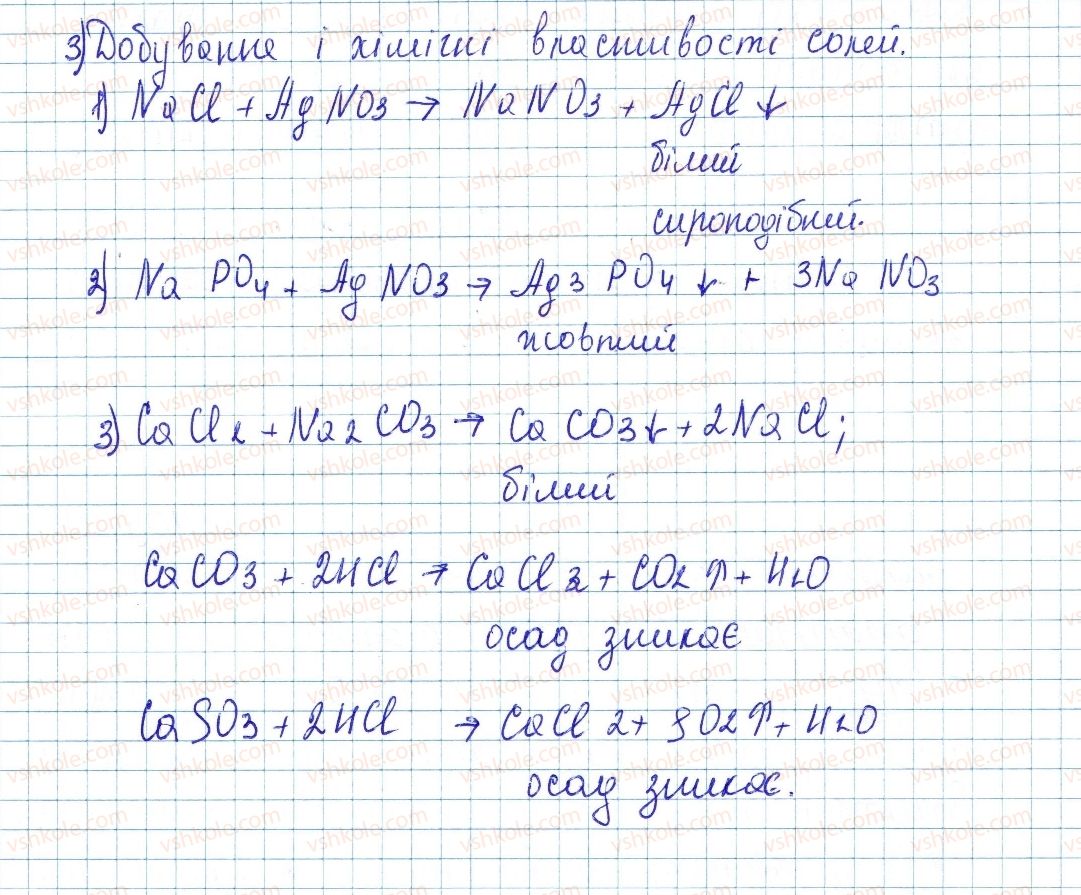 3) Добування і хімічні властивості солей.
1) NaCl + AgNO3 → NaNO3 + AgCl ↓
білий
сироподібний.
2) Na PO4 + AgNO3 → Ag3 PO4 ↓ + 3Na NO3
жовтий
3) CaCl2 + Na2CO3 → CaCO3↓ + 2NaCl;
білий
CaCO3 + 2HCl → CaCl2 + CO2↑ + H2O
осад зникає
CaSO3 + 2HCl → CaCl2 + SO2↑ + H2O
осад зникає.
vshkole.com